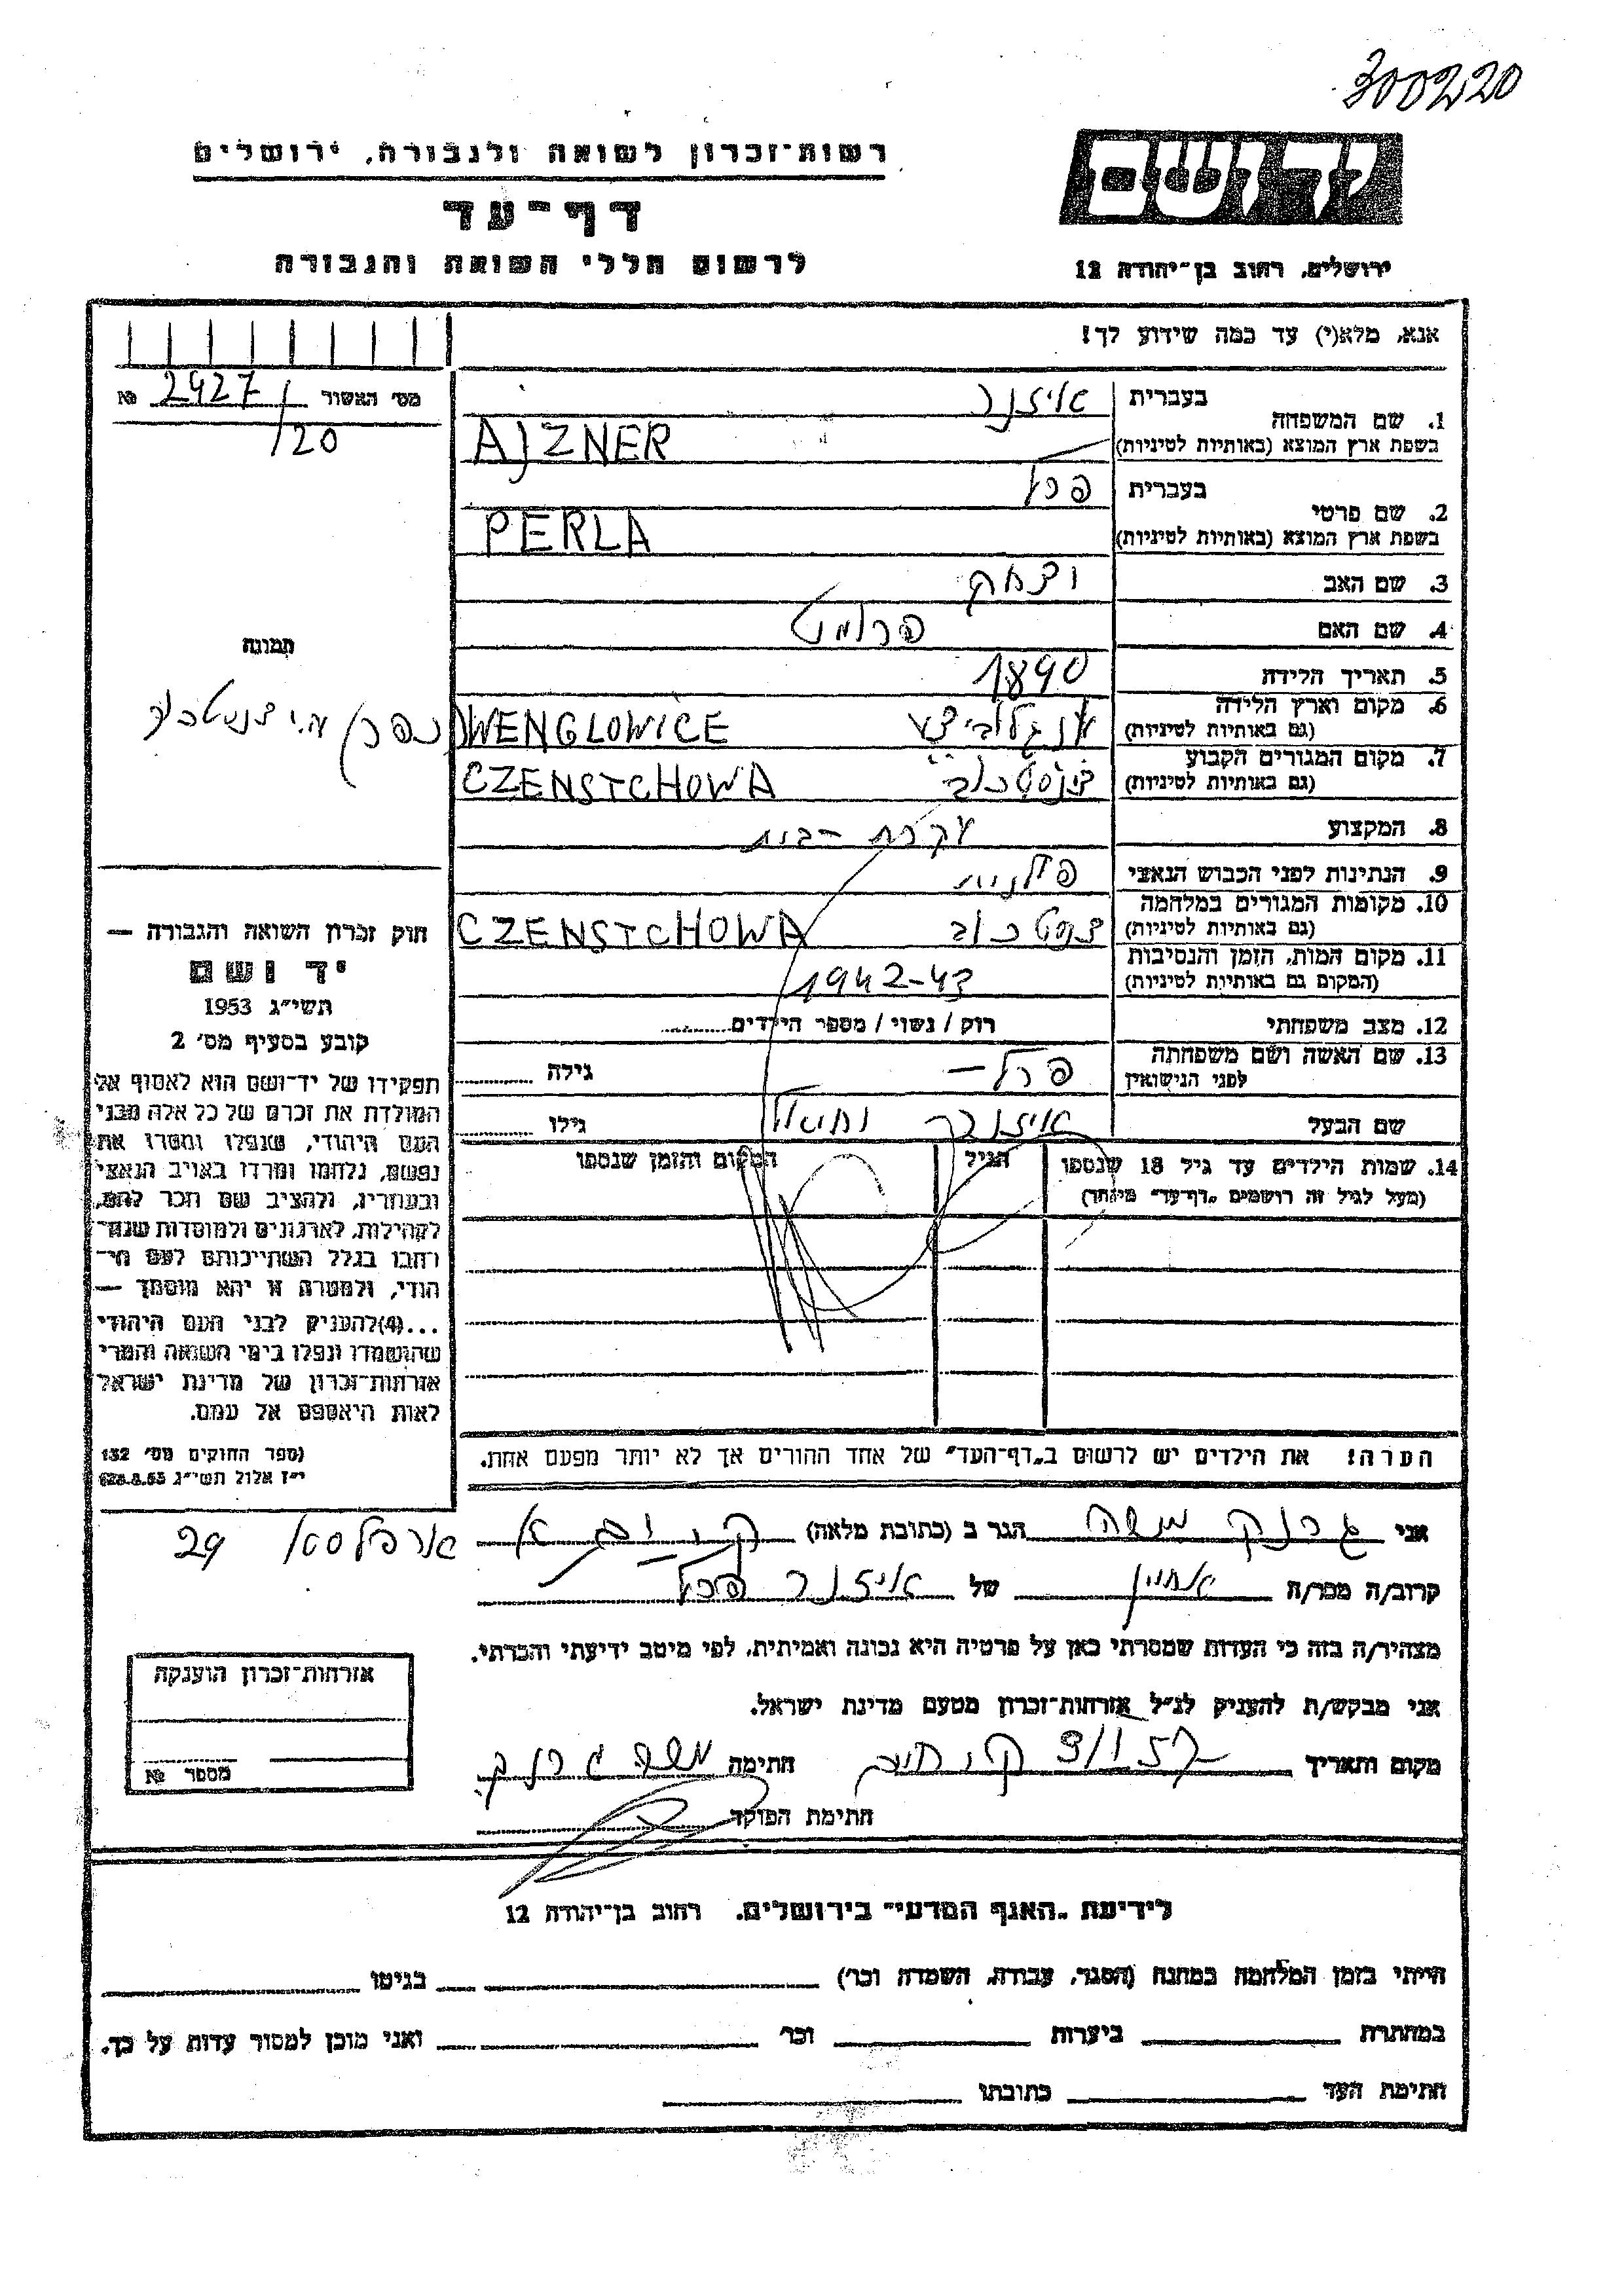 300220
יד ושם
ירושלים, רחוב בן־יהודה 12
רשות־זכרון לשואה ולגבורה, ירושלים
דף־עד
לרשום חללי השואה והגבורה
אנא, מלא(י) עד כמה שידוע לך!
מס' האשור 2427 №
/20
1. שם המשפחה
בעברית איזנר
בשפת ארץ המוצא (באותיות לטיניות) AJZNER
2. שם פרטי
בעברית פרל
בשפת ארץ המוצא (באותיות לטיניות) PERLA
3. שם האב יצחק
4. שם האם פרומט
5. תאריך הלידה 1890
6. מקום וארץ הלידה
(גם באותיות לטיניות) WENGLOWICE
7. מקום המגורים הקבוע
(גם באותיות לטיניות) צ'נסטכוב CZENSTCHOWA
8. המקצוע עקרת־בית
9. הנתינות לפני הכבוש הנאצי פולנית
10. מקומות המגורים במלחמה
(גם באותיות לטיניות) CZENSTCHOWA
11. מקום המות, הזמן והנסיבות
(המקום גם באותיות לטיניות) 1942-43
12. מצב משפחתי רוק / נשוי / מספר הילדים
13. שם האשה ושם משפחתה
לפני הנישואין פרל — גילה
שם הבעל איזנר גילו
14. שמות הילדים עד גיל 18 שנספו הגיל המקום והזמן שנספו
(מעל לגיל זה רושמים „דף־עד" מיוחד)
הערה! את הילדים יש לרשום ב„דף־העד" של אחד ההורים אך לא יותר מפעם אחת.
תמונה
חוק זכרון השואה והגבורה —
יד ושם
תשי"ג 1953
קובע בסעיף מס' 2
תפקידו של יד־ושם הוא לאסוף אל
המולדת את זכרם של כל אלה מבני
העם היהודי, שנפלו ומסרו את
נפשם, נלחמו ומרדו באויב הנאצי
ובעוזריו, ולהציב שם וזכר להם,
לקהילות, לארגונים ולמוסדות שנח־
רבו בגלל השתייכותם לעם הי־
הודי, ולמטרה זו יהא מוסמך —
...(4)להעניק לבני העם היהודי
שהושמדו ונפלו בימי השואה והמרי
אזרחות־זכרון של מדינת ישראל
לאות היאספם אל עמם.
(ספר החוקים מס' 132
י"ז אלול תשי"ג 28.8.53)
אני משה הגר ב (כתובת מלאה) 29
קרוב/ה מכר/ה אחיין של איזנר פרל
מצהיר/ה בזה כי העדות שמסרתי כאן על פרטיה היא נכונה ואמיתית, לפי מיטב ידיעתי והכרתי.
אני מבקש/ת להעניק לנ"ל אזרחות־זכרון מטעם מדינת ישראל.
מקום ותאריך חתימה משה
חתימת הפוקד
אזרחות־זכרון הוענקה
מספר №
לידיעת „האגף המדעי" בירושלים, רחוב בן־יהודה 12
הייתי בזמן המלחמה במחנה (הסגר, עבודה, השמדה וכו') בגיטו
במחתרת ביערות וכו' ואני מוכן למסור עדות על כך.
חתימת העד כתובתו